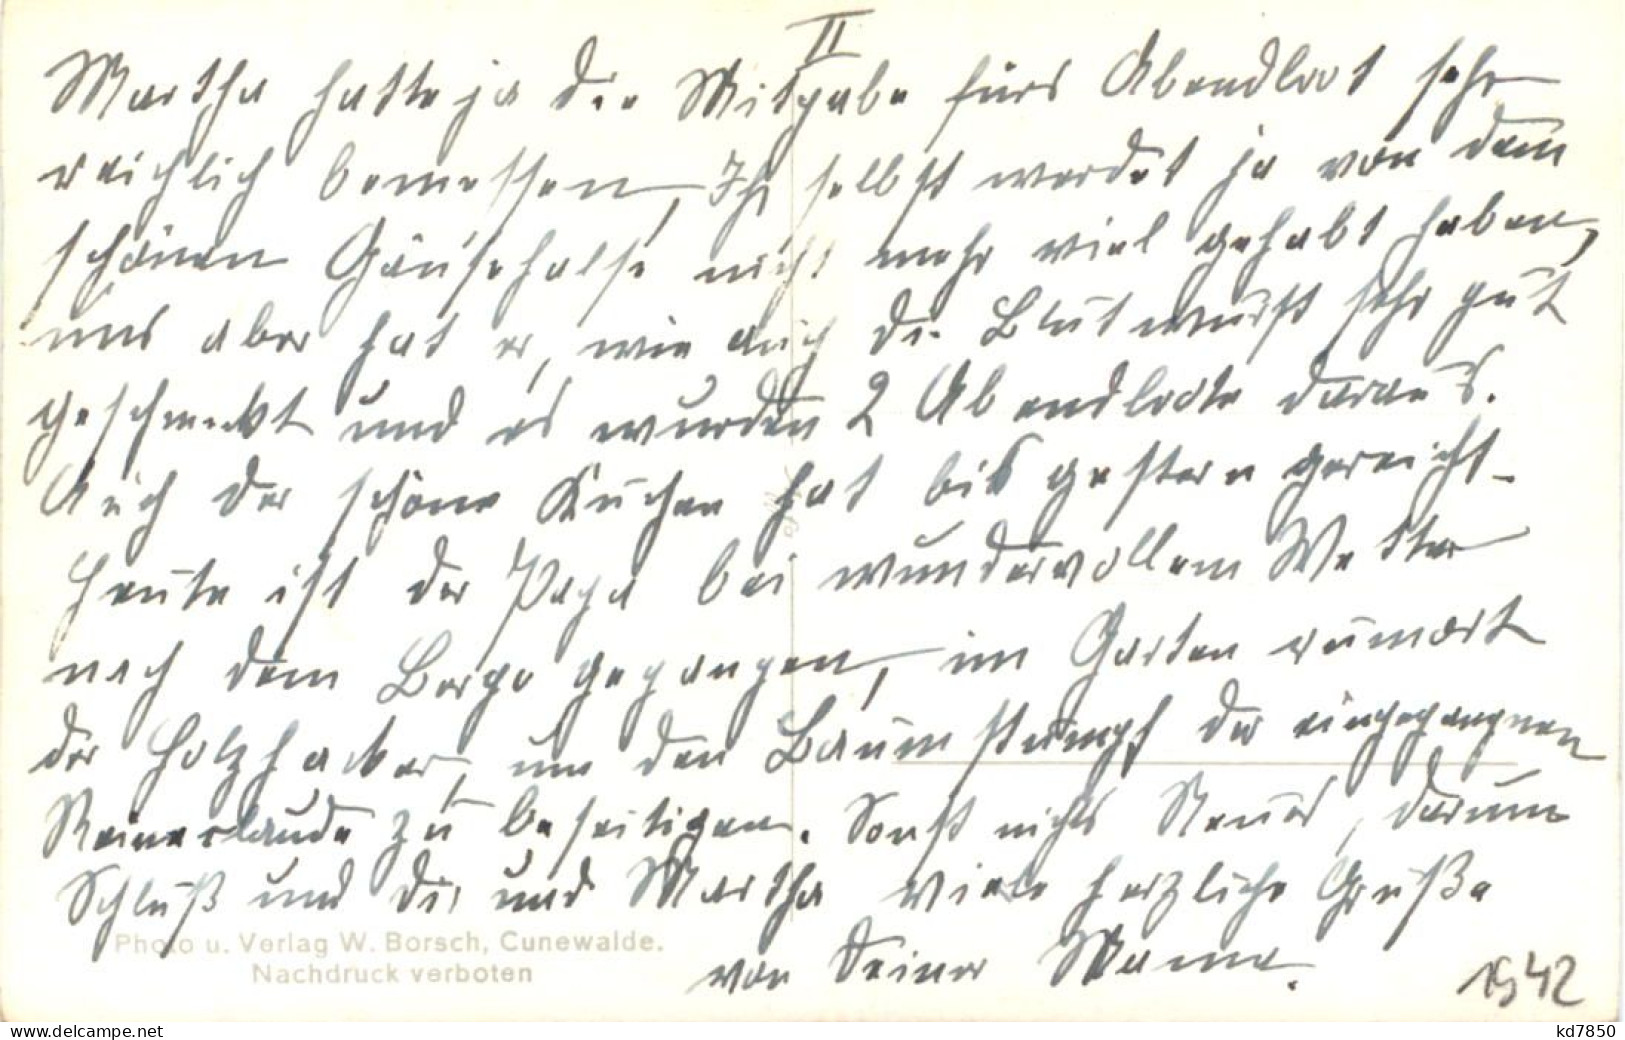 II
Martha hatte ja die Mitgabe fürs Abendbrot sehr
reichlich bemessen, Ihr selbst werdet ja von dem
schönen Gänsehalse nicht mehr viel gehabt haben,
uns aber hat er, wie auch die Blutwurst sehr gut
geschmeckt und es wurden 2 Abendbrote daraus.
Auch der schöne Kuchen hat bis gestern gereicht.
Heute ist der Papa bei wundervollem Wetter
nach dem Berge gegangen, im Garten rumort
der Holzhacker, um den Baumstumpf der eingegangnen
zu beseitigen. Sonst nichts Neues, darum
Schluß und Dir und Martha viele herzliche Grüße
von Deiner Mama.
1942
Photo u. Verlag W. Borsch, Cunewalde.
Nachdruck verboten
www.delcampe.net
kd7850